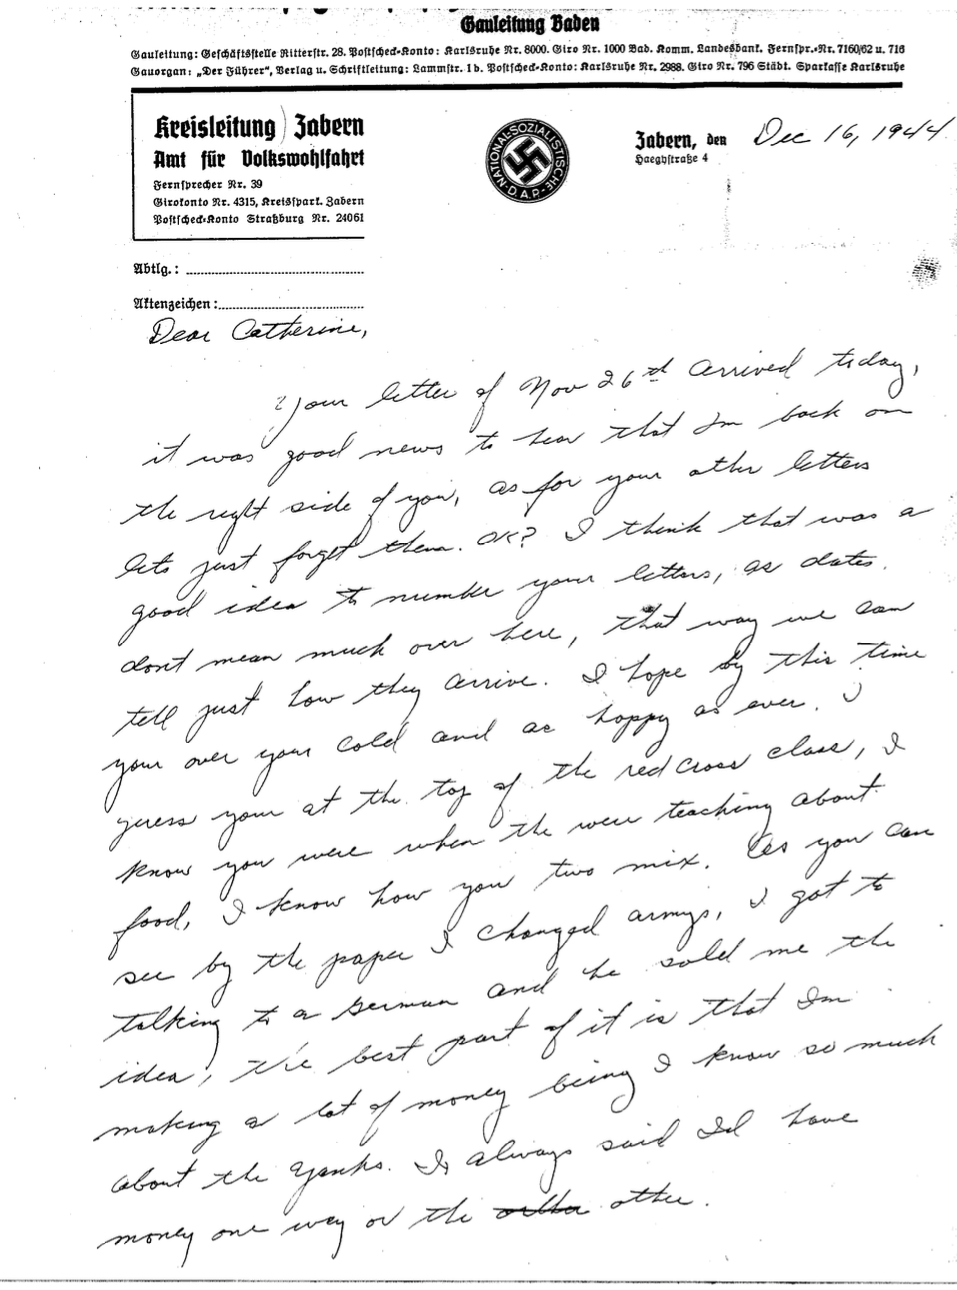 Gauleitung Baden
Gauleitung: Geschäftsstelle Ritterstr. 28. Postscheck-Konto: Karlsruhe Nr. 8000. Giro Nr. 1000 Bad. Komm. Landesbank. Fernspr.-Nr. 7160/62 u. 716
Gauorgan: „Der Führer“, Verlag u. Schriftleitung: Lammstr. 1b. Postscheck-Konto: Karlsruhe Nr. 2988. Giro Nr. 796 Städt. Sparkasse Karlsruhe
Kreisleitung Zabern
Amt für Volkswohlfahrt
Fernsprecher Nr. 39
Girokonto Nr. 4315, Kreisspark. Zabern
Postscheck-Konto Straßburg Nr. 24061
NATIONAL-SOZIALISTISCHE D.A.P.
Zabern, den Dec 16, 1944
Haeghstraße 4
Abtlg.:
Aktenzeichen:
Dear Catherine,
Your letter of Nov 26th arrived today,
it was good news to hear that Im back on
the right side of you, as for your other letters
lets just forget them. OK? I think that was a
good idea to number your letters, as dates
dont mean much over here, that way we can
tell just how they arrive. I hope by this time
your over your cold and as happy as ever. I
guess your at the top of the red cross class, I
know you were when the were teaching about
food, I know how you two mix. As you can
see by the paper I changed armys, I got to
talking to a German and he sold me the
idea, the best part of it is that Im
making a lot of money being I know so much
about the Yanks. I always said Id have
money one way or the other.